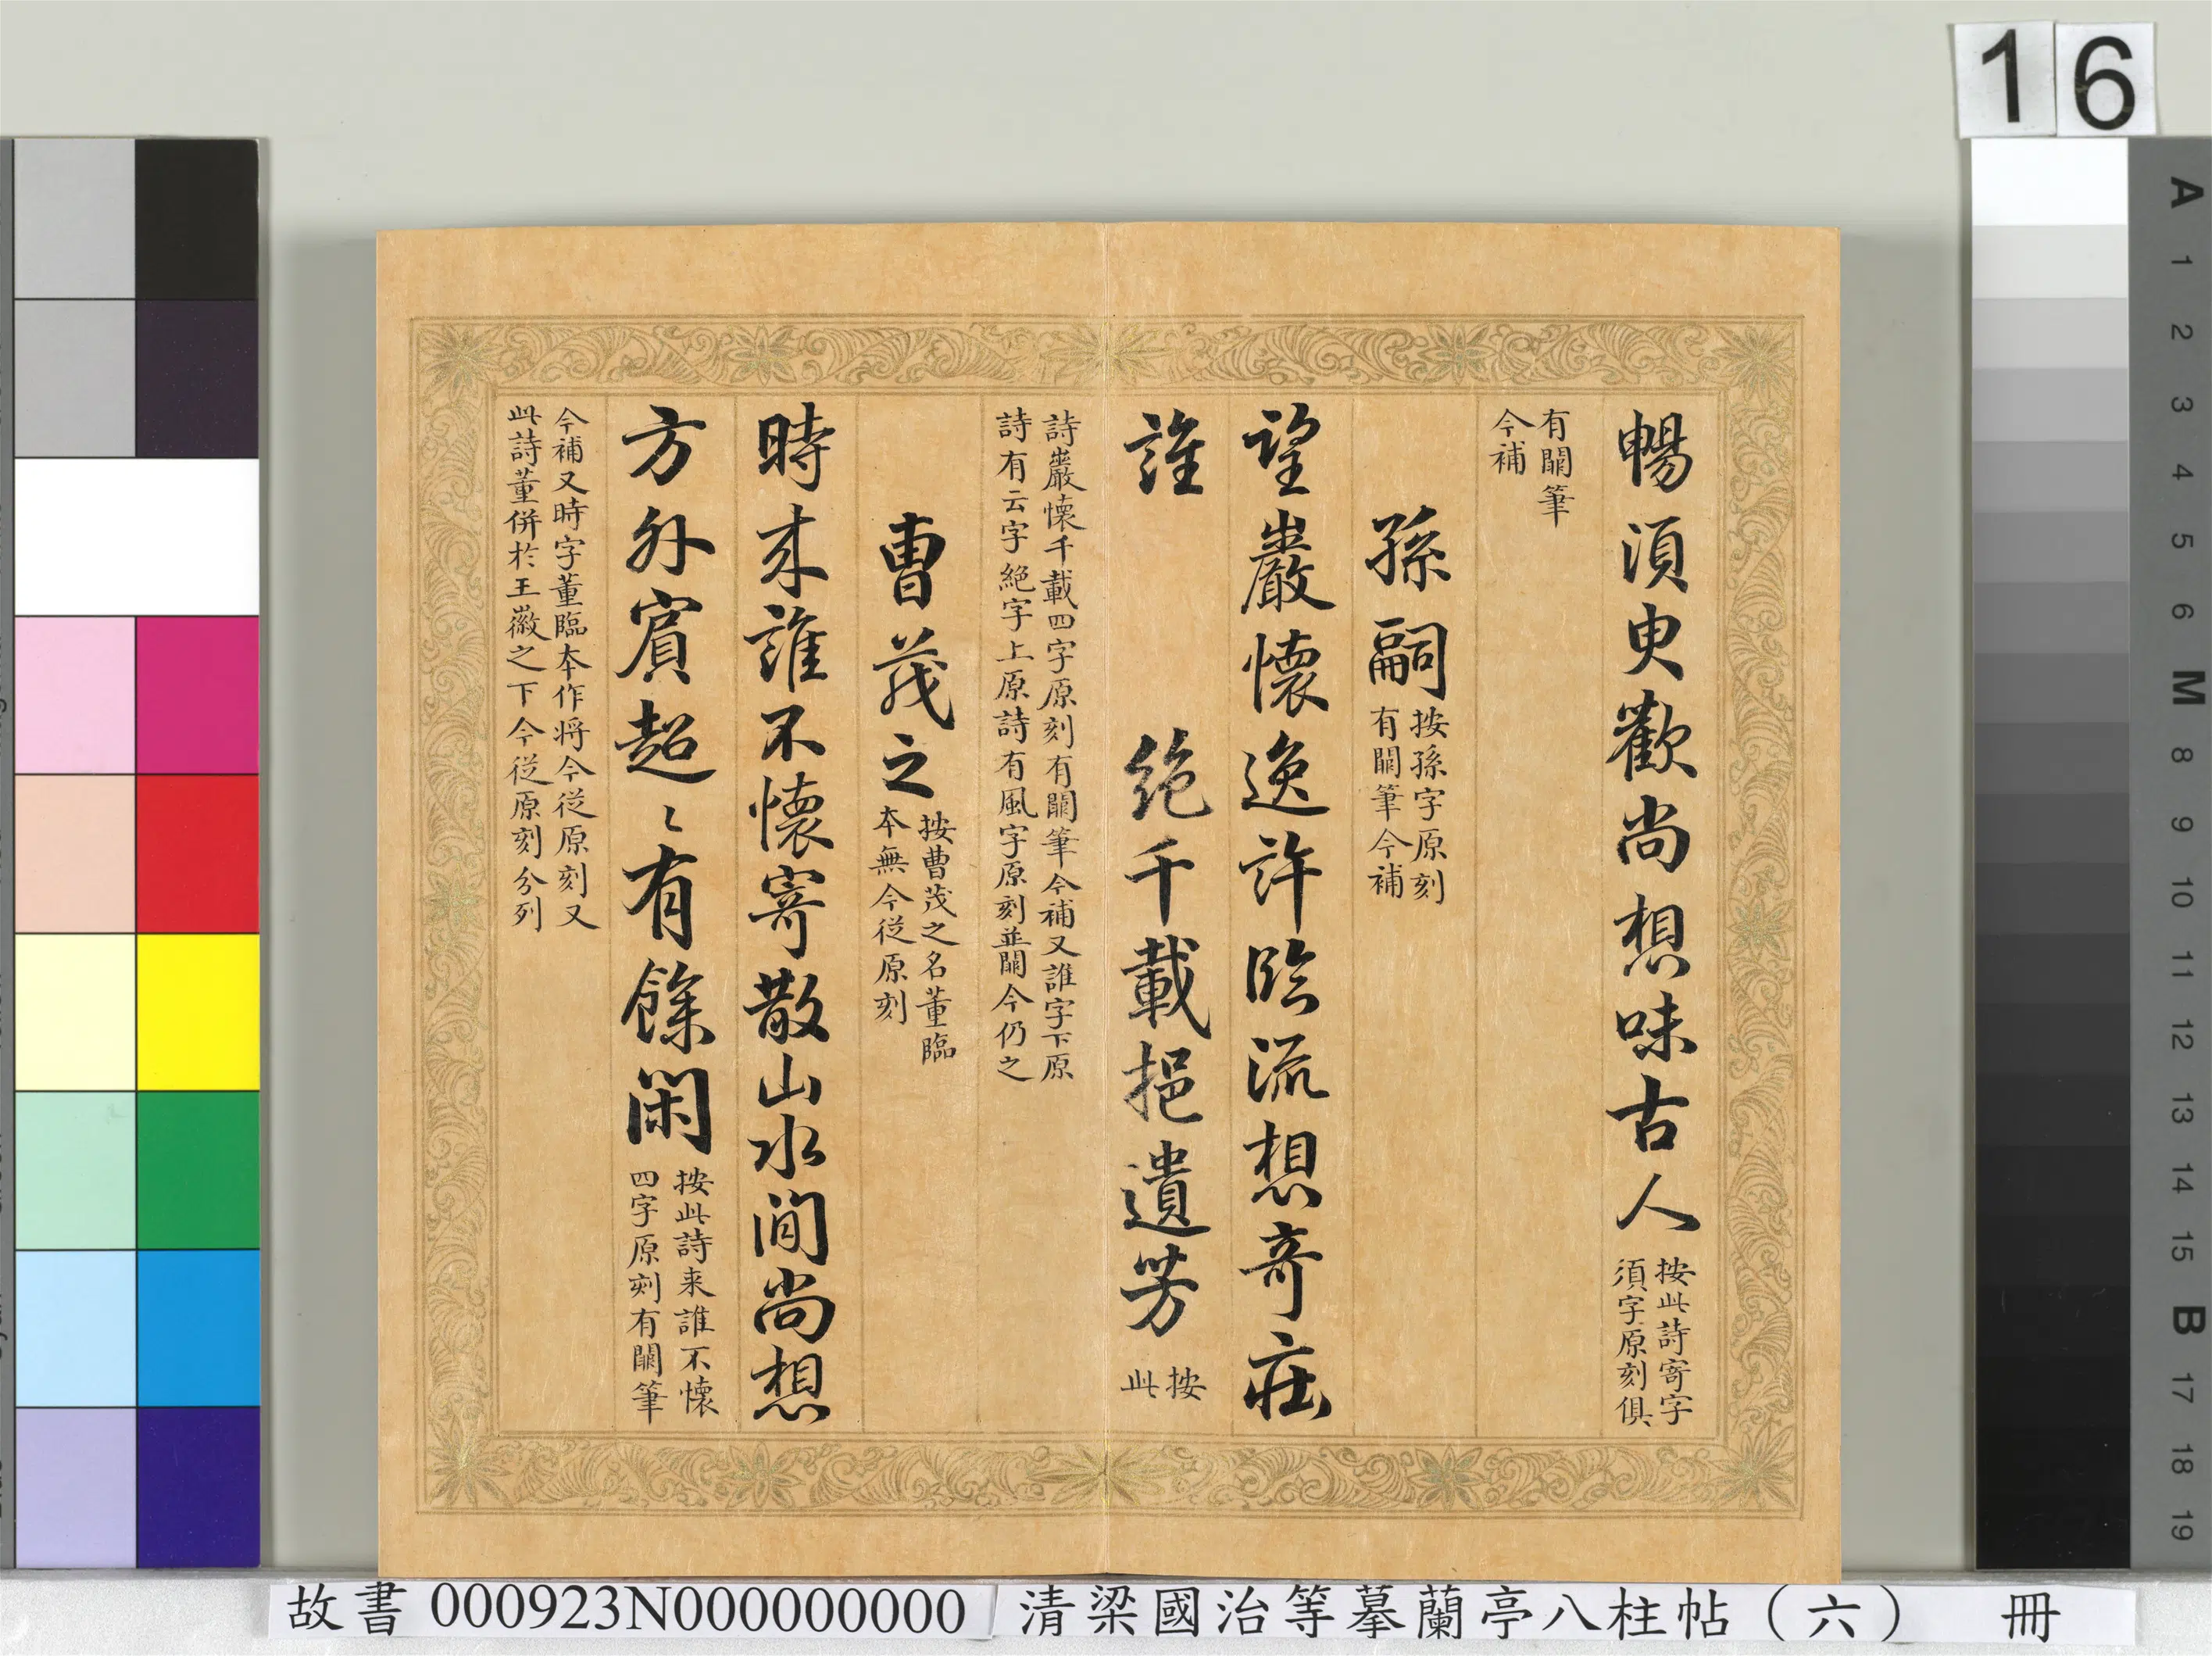 16
暢須臾歡尚想味古人 按此詩寄字
須字原刻俱
有闕筆
今補
孫嗣 按孫字原刻
有闕筆今補
望巖懷逸許臨流想奇莊
誰 絕千載挹遺芳 按
此
詩巖懷千載四字原刻有闕筆今補又誰字下原
詩有云字絕字上原詩有風字原刻並闕今仍之
曹茂之 按曹茂之名董臨
本無今從原刻
時來誰不懷寄散山水間尚想
方外賓超〻有餘閑 按此詩来誰不懷
四字原刻有闕筆
今補又時字董臨本作将今從原刻又
此詩董併於王徽之下今從原刻分列
A 1 2 3 4 5 6 M 8 9 10 11 12 13 14 15 B 17 18 19
故書 000923N000000000 清梁國治等摹蘭亭八柱帖（六） 冊